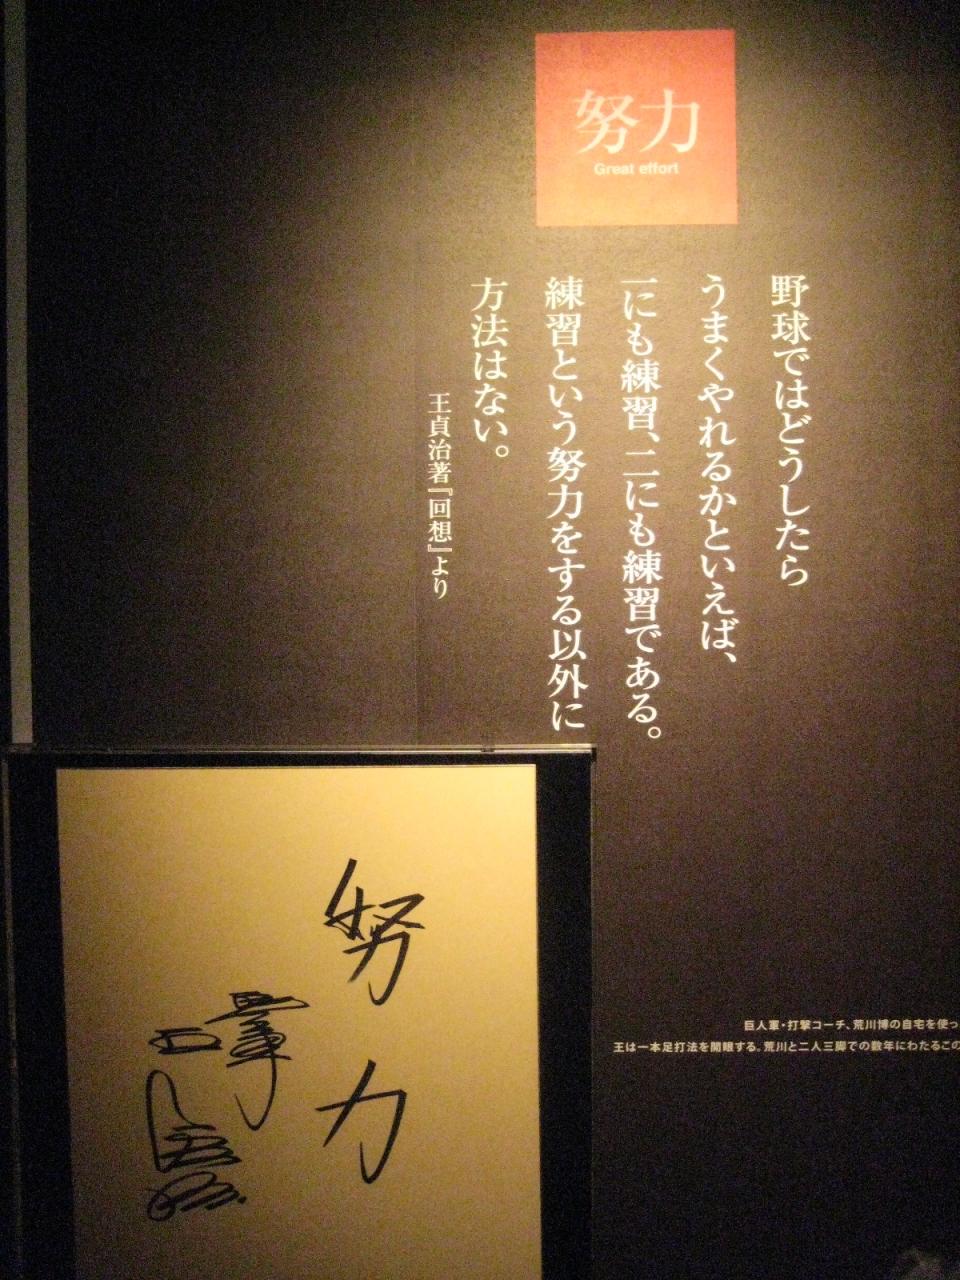 努力
Great effort
野球ではどうしたら
うまくやれるかといえば、
一にも練習、二にも練習である。
練習という努力をする以外に
方法はない。
王貞治著『回想』より
努力
巨人軍・打撃コーチ、荒川博の自宅を使っ
王は一本足打法を開眼する。荒川と二人三脚での数年にわたるこの